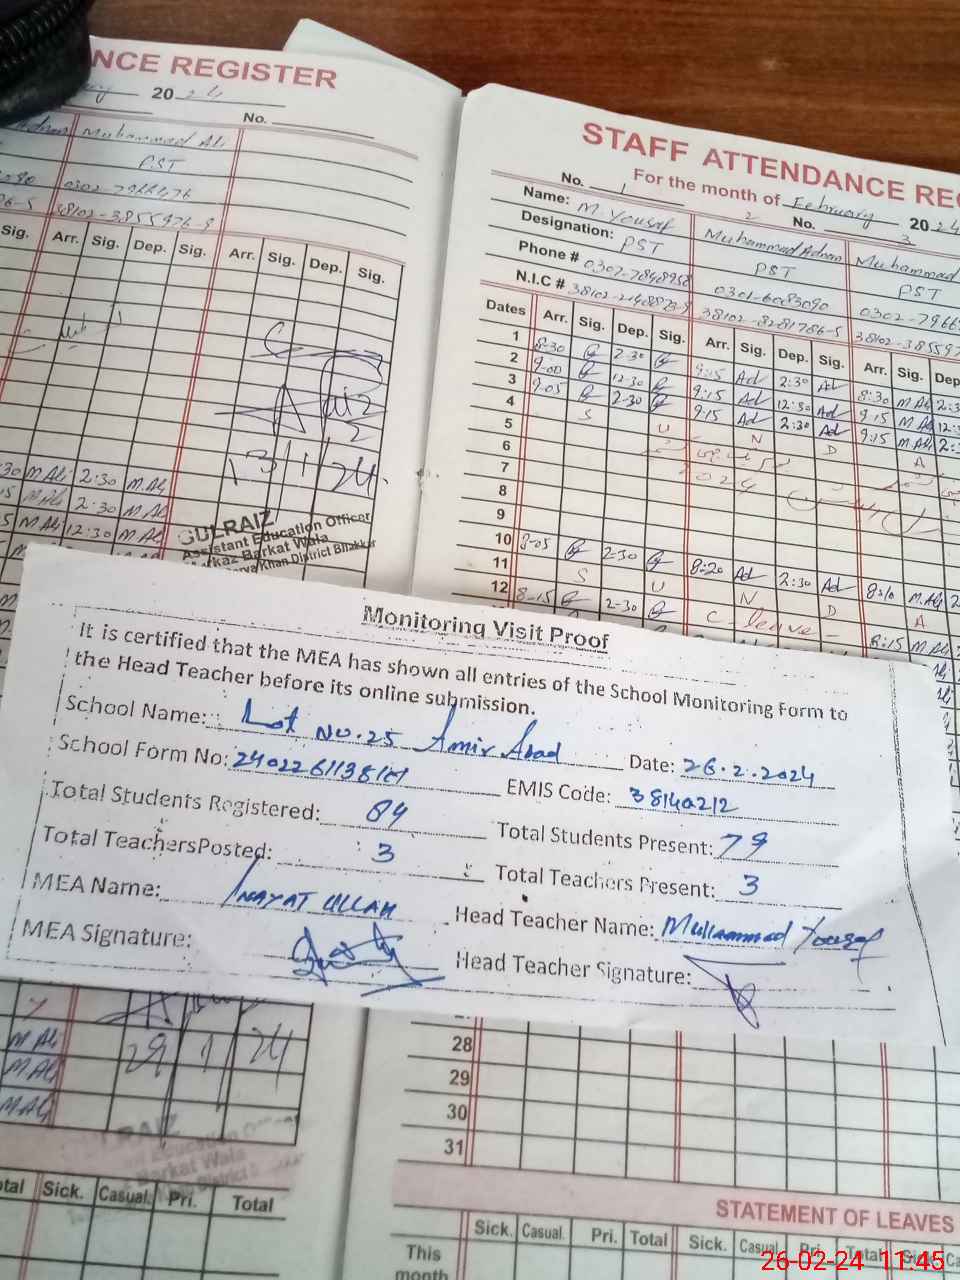 NCE REGISTER
20 24
No.
Adnan Muhammad Ali
PST
38102-3855976-9
Sig. Arr. Sig. Dep. Sig. Arr. Sig. Dep. Sig.
13/1/24.
:30 M.Ali 2:30 M.Ali
15 M.Ali 2:30 M.Ali
5 M.Ali 12:30 M.Ali
GULRAIZ
Assistant Education Officer
Markaz Barkat Wala
Khan District Bhakkar
STAFF ATTENDANCE REG
For the month of February 2024
No. 1 No. 2 3
Name: M. Yousaf Muhammad Adnan Muhammad
Designation: PST PST PST
Phone # 0307-7848958 0301-6083090 0302-7966
N.I.C # 38102-2148878-9 38102-8281786-5 38102-38559
Dates Arr. Sig. Dep. Sig. Arr. Sig. Dep. Sig. Arr. Sig. Dep
1 8-30 2-30 9:15 Ad 2:30 Ad 8:30 M.Ali 2:3
2 9-00 12-30 9:15 Ad 12:30 Ad 9:15 M.Ali 12:
3 9-05 2-30 9:15 Ad 2:30 Ad 9:15 M.Ali 2:
4 S U N D A
5
6
7
8
9
10 8-05 2-30 8:20 Ad 2:30 Ad 8:10 M.Ali 2
11 S U N D A
12 8-15 2-30 C-leave- 8:15 M.Ali
Monitoring Visit Proof
It is certified that the MEA has shown all entries of the School Monitoring Form to
the Head Teacher before its online submission.
School Name: Lot No. 25 Amir Abad Date: 26.2.2024
School Form No: 240226113818H EMIS Code: 38140212
Total Students Registered: 84 Total Students Present: 79
Total TeachersPosted: 3 Total Teachers Present: 3
MEA Name: INAYAT ULLAH Head Teacher Name: Muhammad Yousaf
MEA Signature: Head Teacher Signature:
M.Ali 29 1 24
M.Ali
M.Ali
28
29
30
31
RAIZ
Barkat Wala
otal Sick. Casual. Pri. Total
STATEMENT OF LEAVES
Sick. Casual. Pri. Total Sick. Casual. Pri. Total Sick. Ca
This
month
26-02-24 11:45